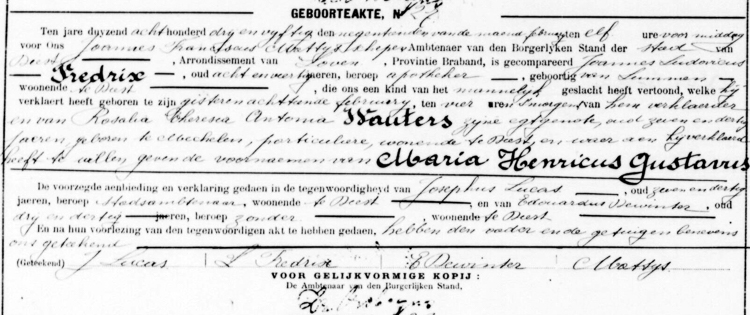 GEBOORTEAKTE, N
Ten jare duyzend achthonderd dry en vyftig den negentienden van de maend february ten elf ure voor middag
voor Ons Joannes Franciscus Mattys schepen Ambtenaer van den Borgerlyken Stand der stad van
Diest, Arrondissement van Loven, Provintie Braband, is gecompareerd Joannes Ludovicus
Fredrix, oud acht en veertig jaeren, beroep apotheker, geboortig van Lummen
woonende te Diest, die ons een kind van het mannelyk geslacht heeft vertoond, welke hy
verklaert heeft geboren te zijn gisteren achttiende february, ten vier uren 's morgens, van hem verklaerder
en van Rosalia Theresia Antonia Wauters zyne egtgenote, oud zeven en dertig
jaeren, geboren te Mechelen, particuliere, woonende te Diest, en waer aen hy verklaerd
heeft te willen geven de voornaemen van Maria Henricus Gustavus
De voorzegde aenbieding en verklaring gedaen in de tegenwoordigheyd van Josephus Lucas, oud zeven en dertig
jaeren, beroep Stadsambtenaar, woonende te Diest, en van Edouardus Dewinter, oud
dry en dertig jaeren, beroep zonder, woonende te Diest
En na hun voorlezing van den tegenwoordigen akt te hebben gedaen, hebben den vader en de getuigen benevens
ons getekend
(Geteekend) J Lucas L Fredrix E Dewinter Mattys
VOOR GELIJKVORMIGE KOPIJ:
De Ambtenaar van den Burgerlijken Stand,